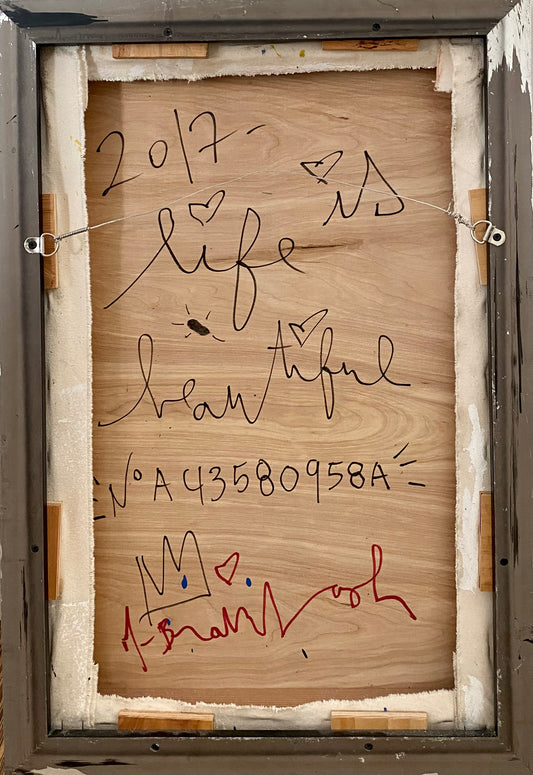 2017-
life is
beautiful
Nº A43580958A
Mr Brainwash